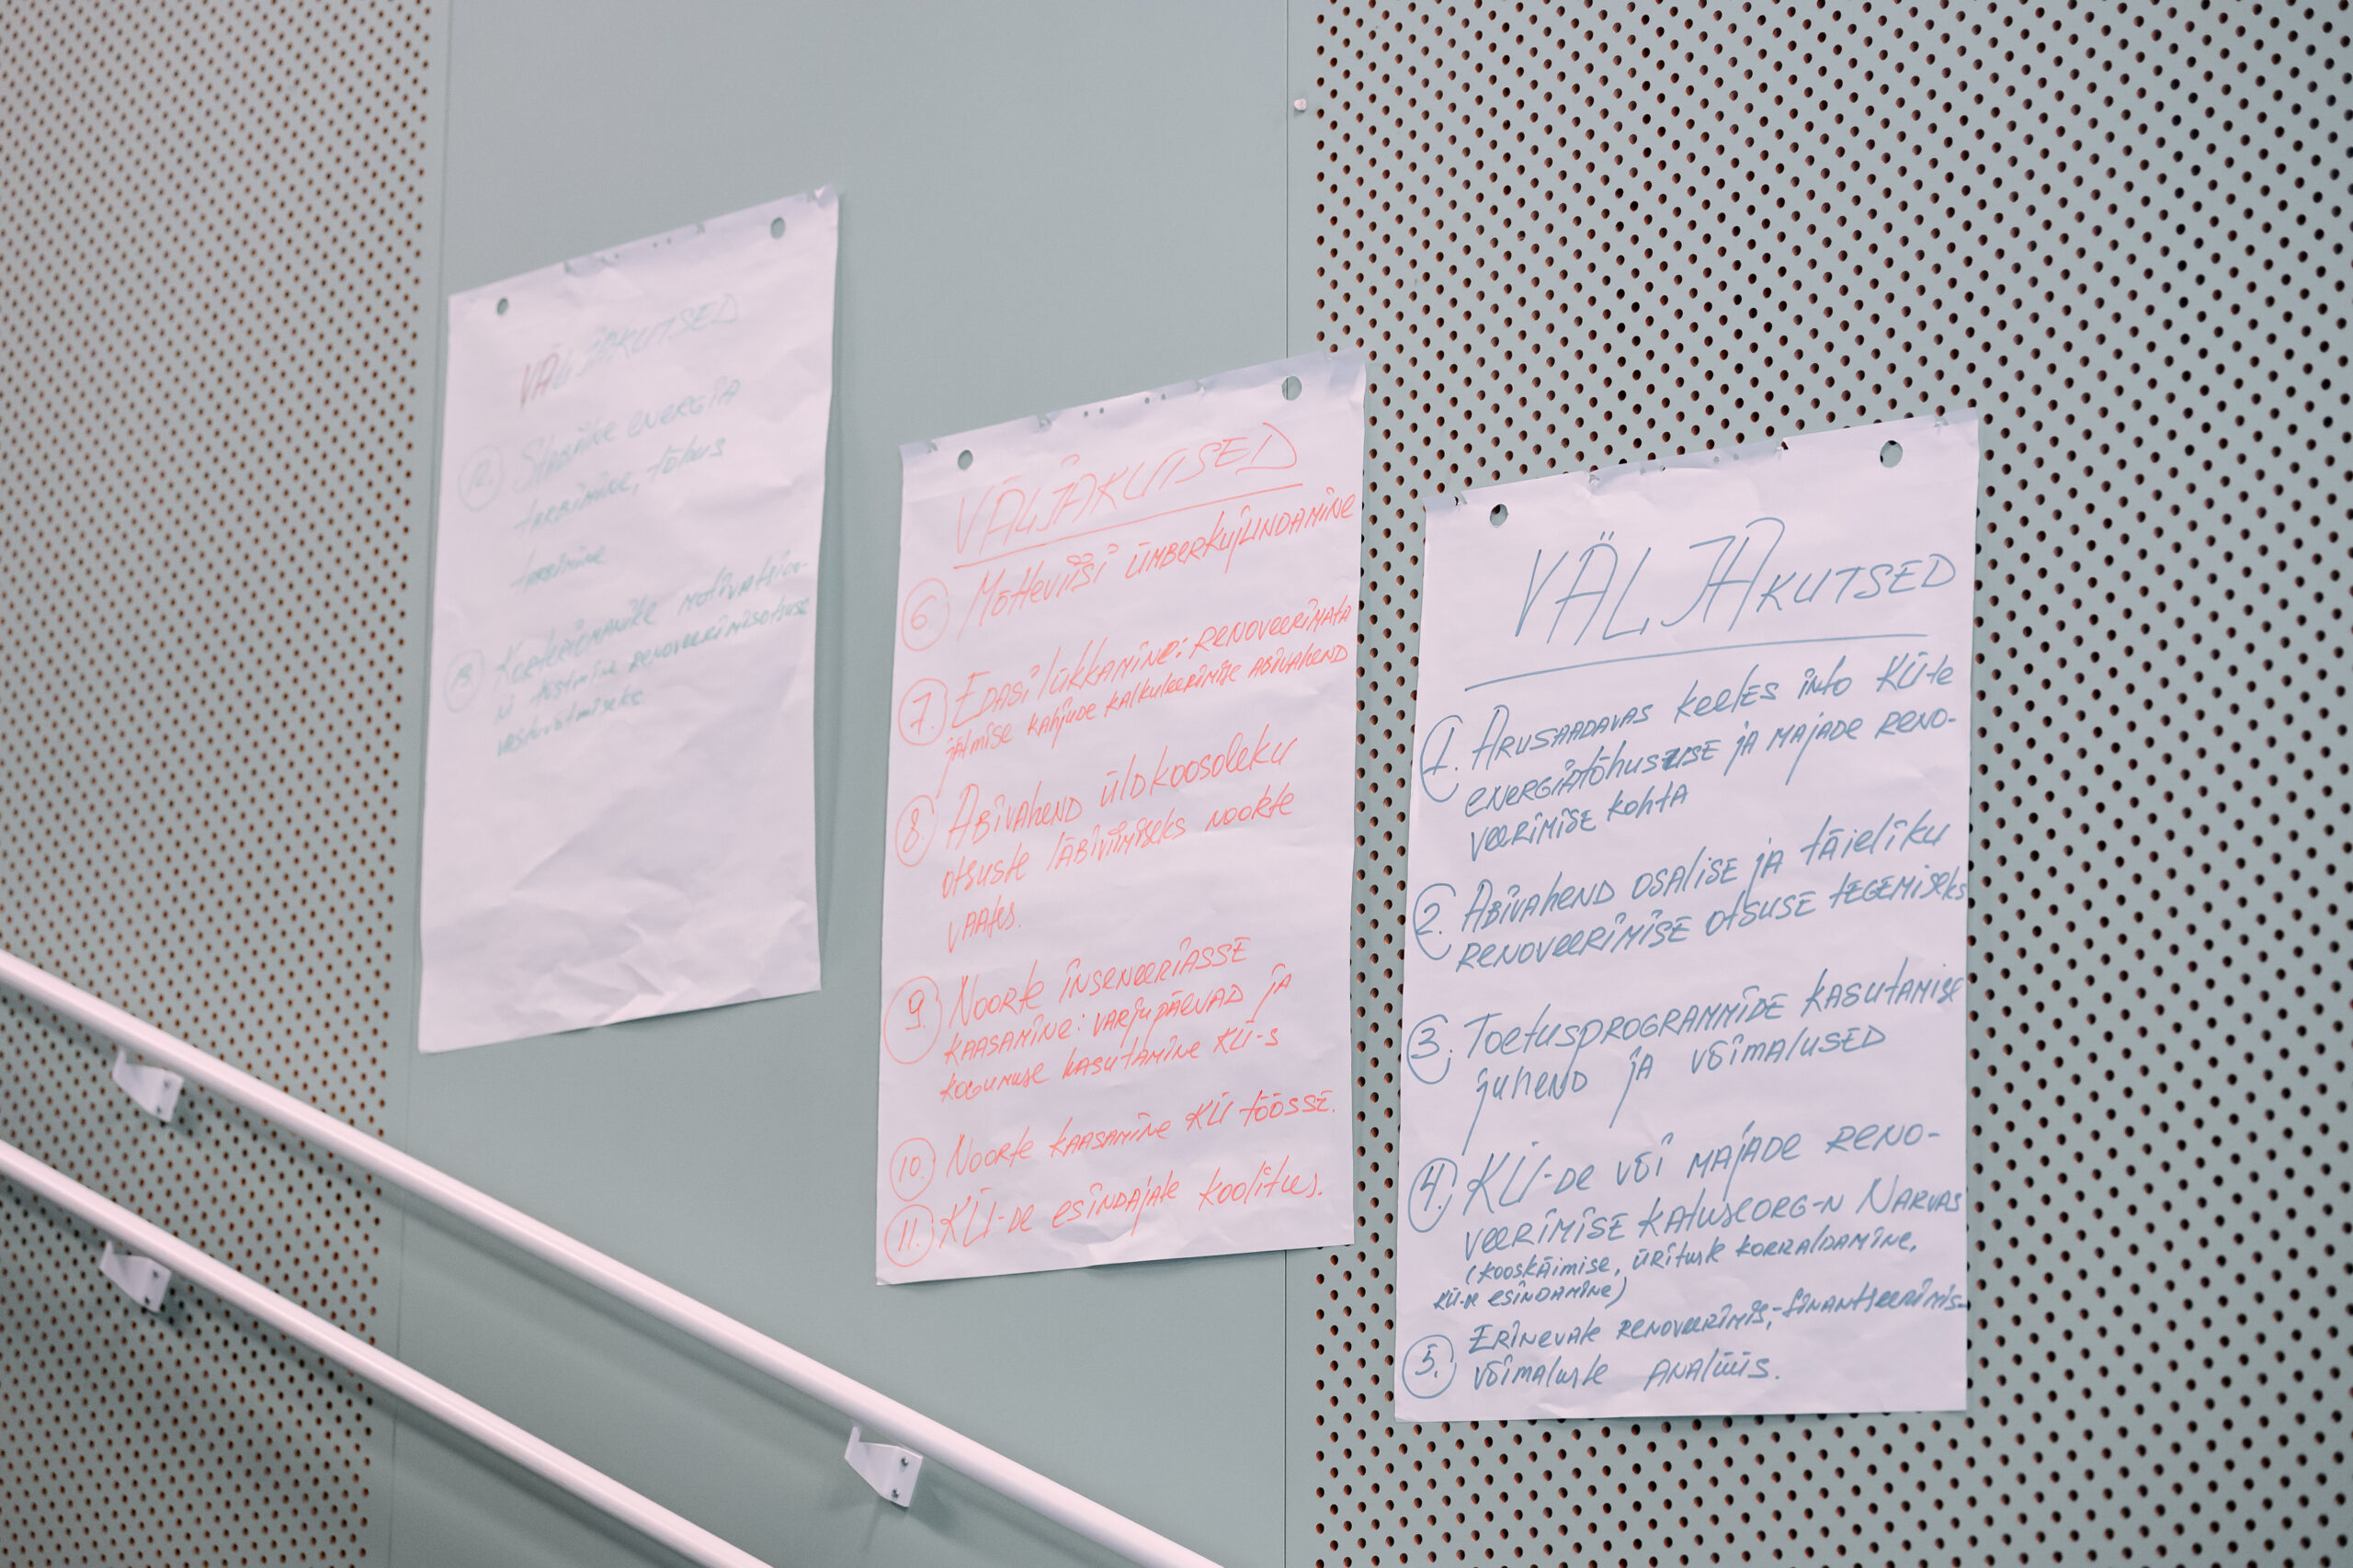 VÄLJAKUTSED
12. Stabiilne energia
tarbimine, tõhus
tarbimine
13. Korteriomanike motivatsioo-
ni tõstmine renoveerimisotsuse
vastuvõtmiseks
VÄLJAKUTSED
6 Mõtteviisi ümberkujundamine
7. Edasilükkamine: renoveerimata
jätmise kahjude kalkuleerimise abivahend
8 Abivahend üldkoosoleku
otsuste läbiviimiseks noorte
vaates.
9. Noorte inseneeriasse
kaasamine: varjupäevad ja
kogemuse kasutamine KÜ-s
10. Noorte kaasamine KÜ töösse.
11. KÜ-de esindajate koolitus.
VÄLJAKUTSED
1. Arusaadavas keeles info KÜ-te
energiatõhususe ja majade reno-
veerimise kohta
2. Abivahend osalise ja täieliku
renoveerimise otsuse tegemiseks
3. Toetusprogrammide kasutamise
juhend ja võimalused
4. KÜ-de või majade reno-
veerimise katuseorg-n Narvas
(kooskäimise, ürituste korraldamine,
KÜ-de esindamine)
5. Erinevate renoveerimis-, finantseerimis-
võimaluste analüüs.